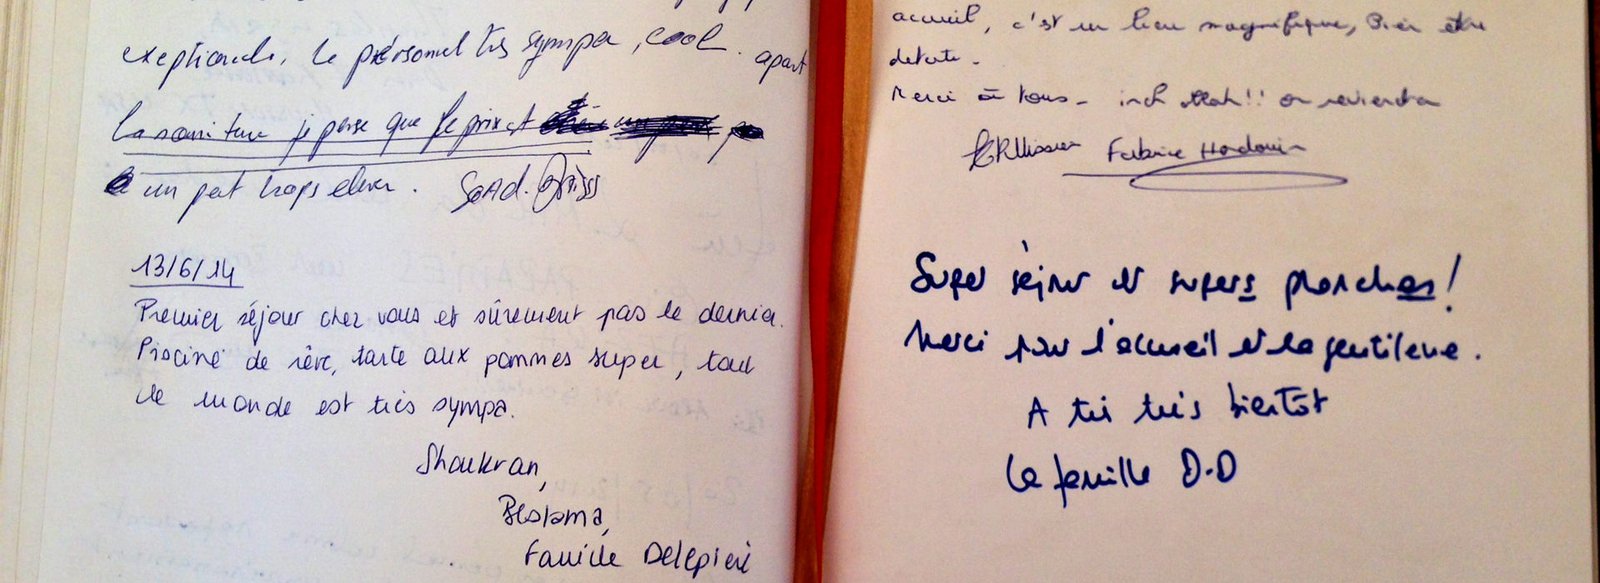 exeptionels, le personnel très sympa, cool. apart
la nourriture je pense que le prix et
un peut trops elever. SaAd.
13/6/14
Premier séjour chez vous et sûrement pas le dernier.
Piscine de rêve, tarte aux pommes super, tout
le monde est très sympa.
Shoukran,
Beslama,
Famille Delepière
accueil, c'est un lieu magnifique, bien être
détente.
Merci à tous - inch Allah!! on reviendra
Fabrice Hardouin
Super séjour et supers planchas!
Merci pour l'accueil et la gentillesse.
A très très bientôt
La famille D.D